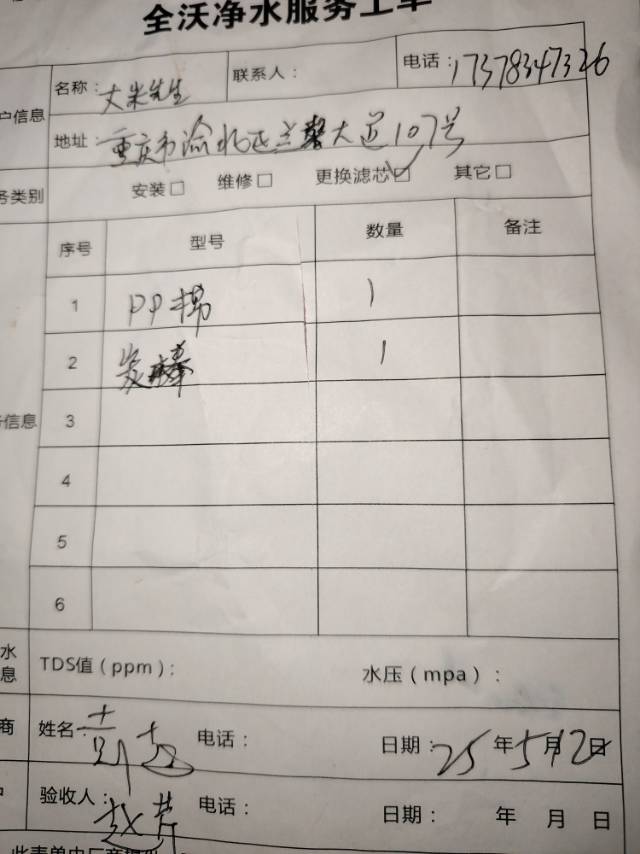 全沃净水服务工单
户信息 名称：大米先生 联系人： 电话：17378347326
地址：重庆市渝北区兰馨大道107号
务类别 安装□ 维修□ 更换滤芯☑ 其它□
序号 型号 数量 备注
1 PP棉 1
2 炭棒 1
信息 3
4
5
6
水 TDS值（ppm）： 水压（mpa）：
息
商 姓名： 电话： 日期：25年5月12日
户 验收人：赵芹 电话： 日期： 年 月 日
此表单由厂商